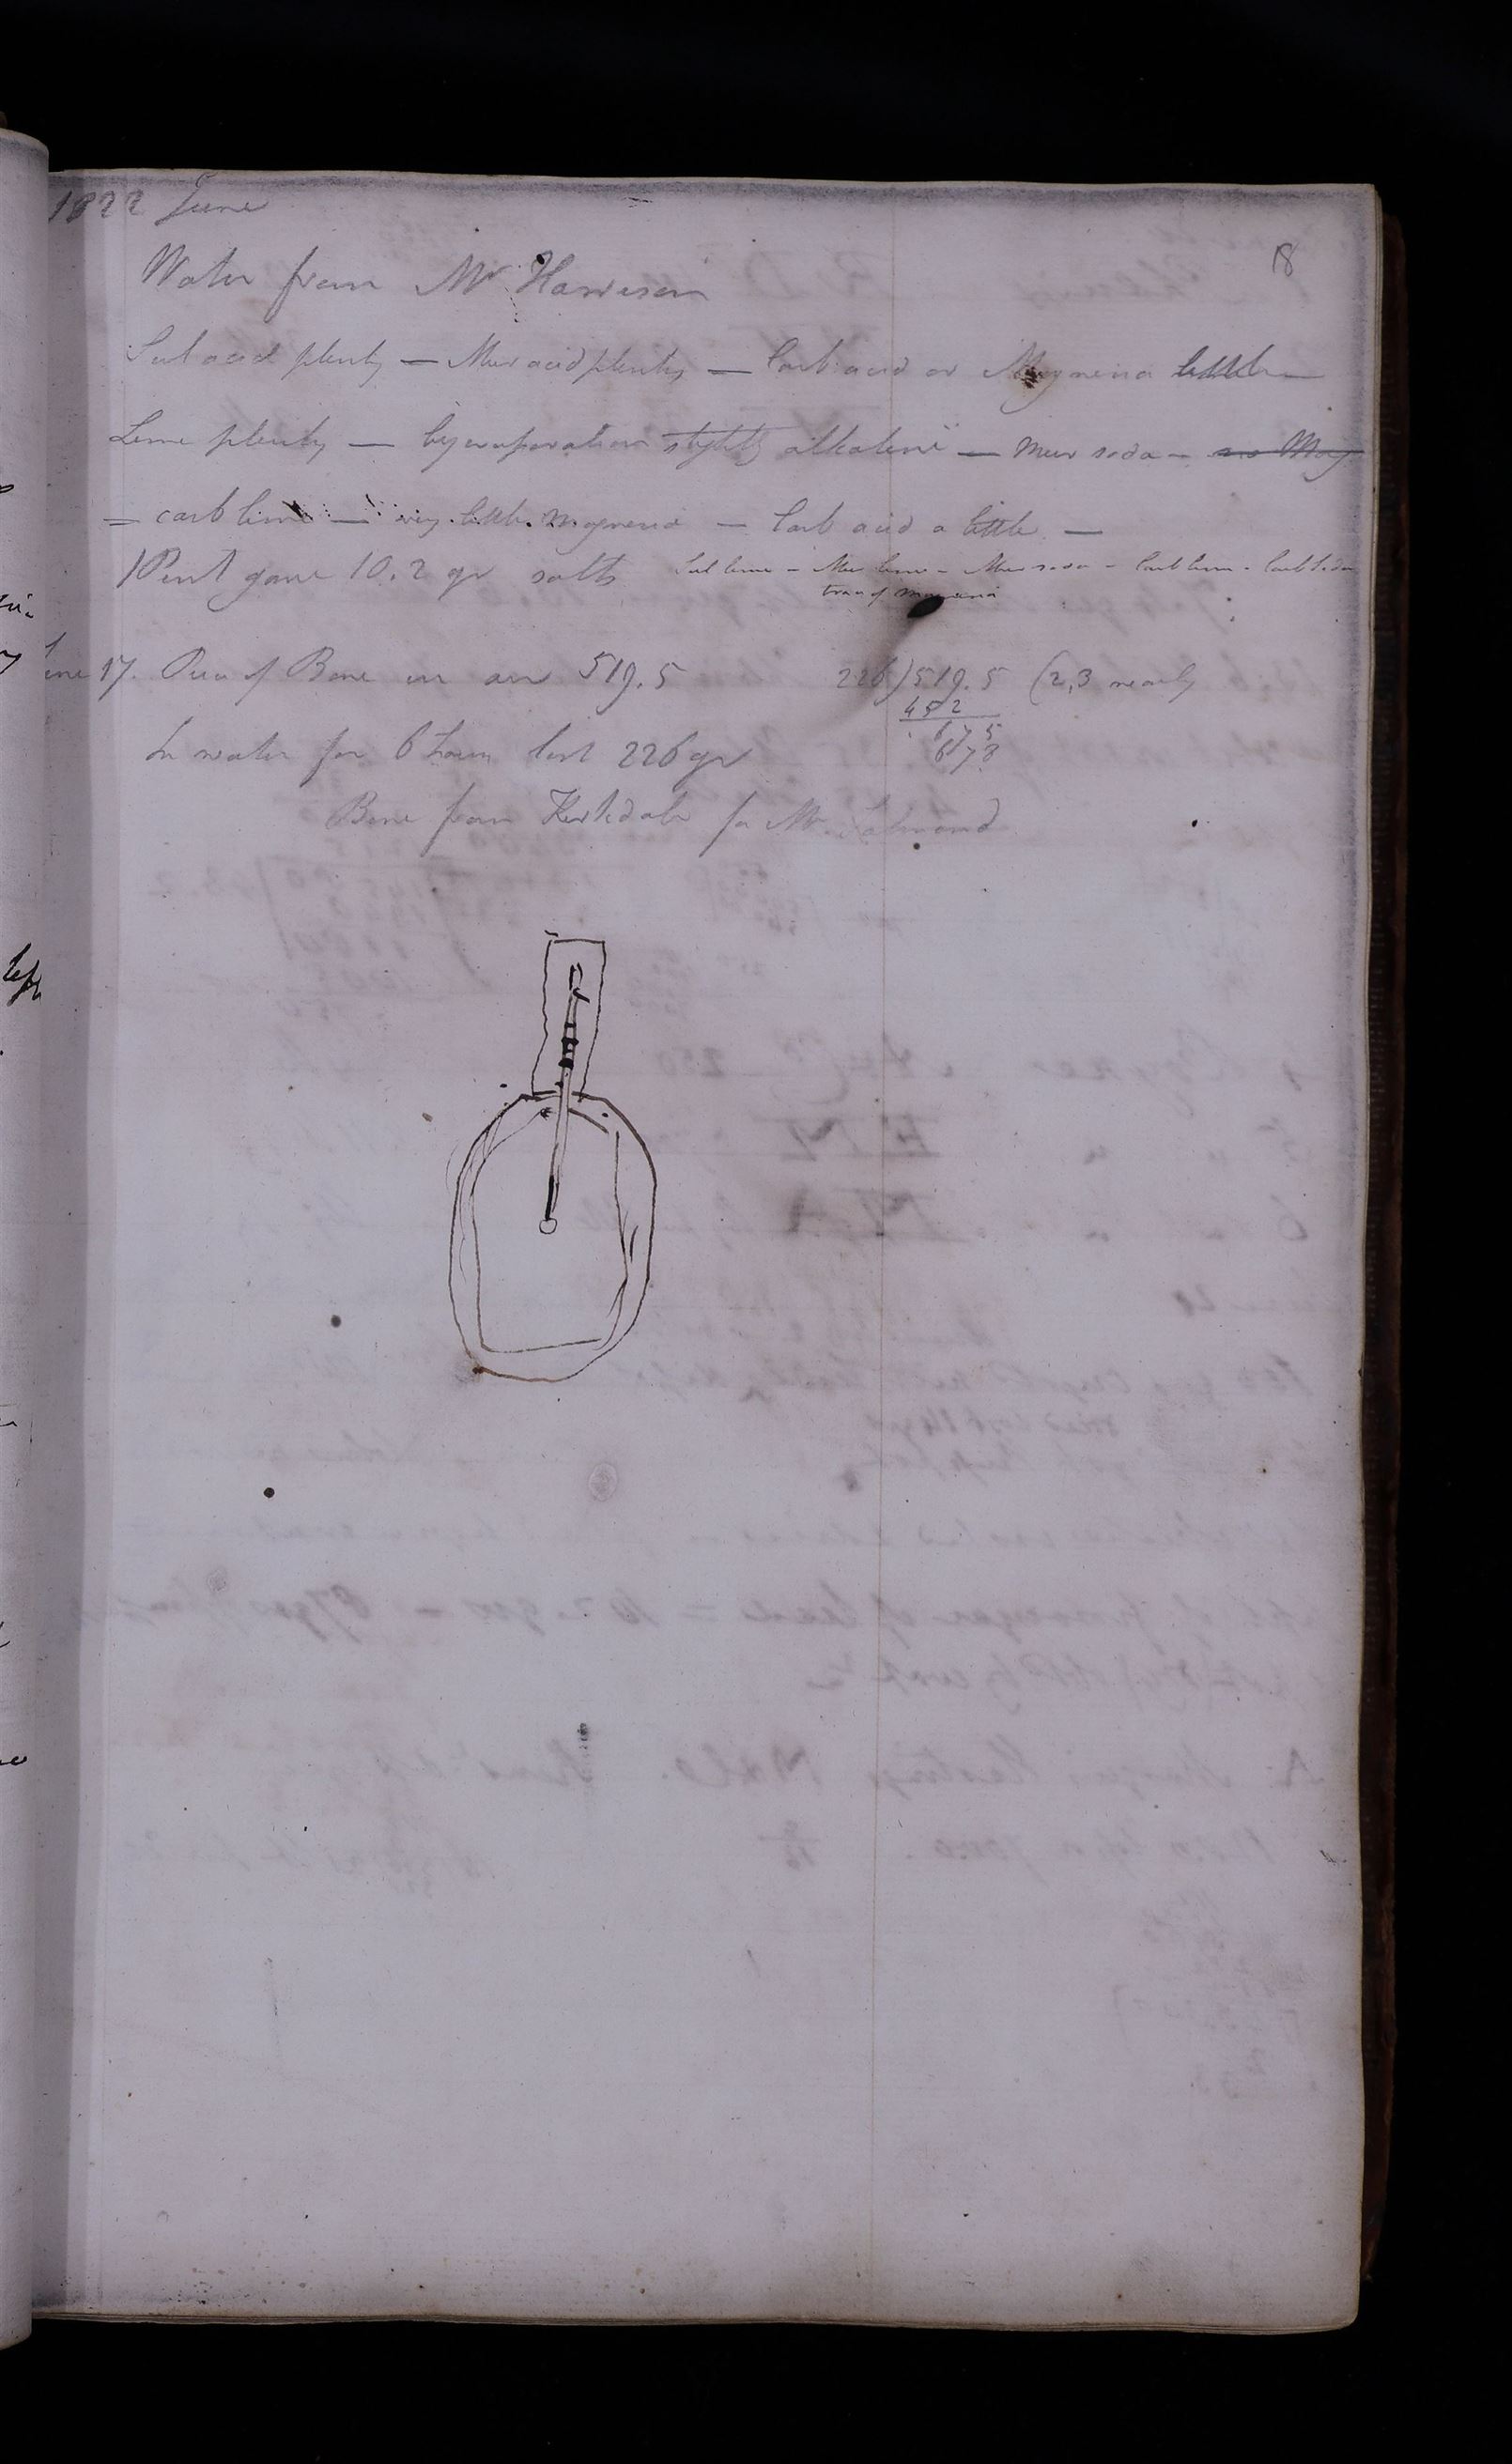 1822 June
18
Water from Mr. Harrison
Sul acid plenty — Mur acid plenty — Carb acid or Magnesia little —
Lime plenty — by evaporation slightly alkaline — Mur soda — no Mag
= carb lime — very little Magnesia — Carb acid a little —
1 Pint gave 10.2 gr salts Sul lime - Mur lime - Mur soda - Carb lime - Carb soda
trace of magnesia
June 17. Piece of Bone in air 519.5 226)519.5 (2,3 nearly
452
675
678
In water for 6 hours lost 226 gr
Bone from Kirkdale for Mr. Salmond